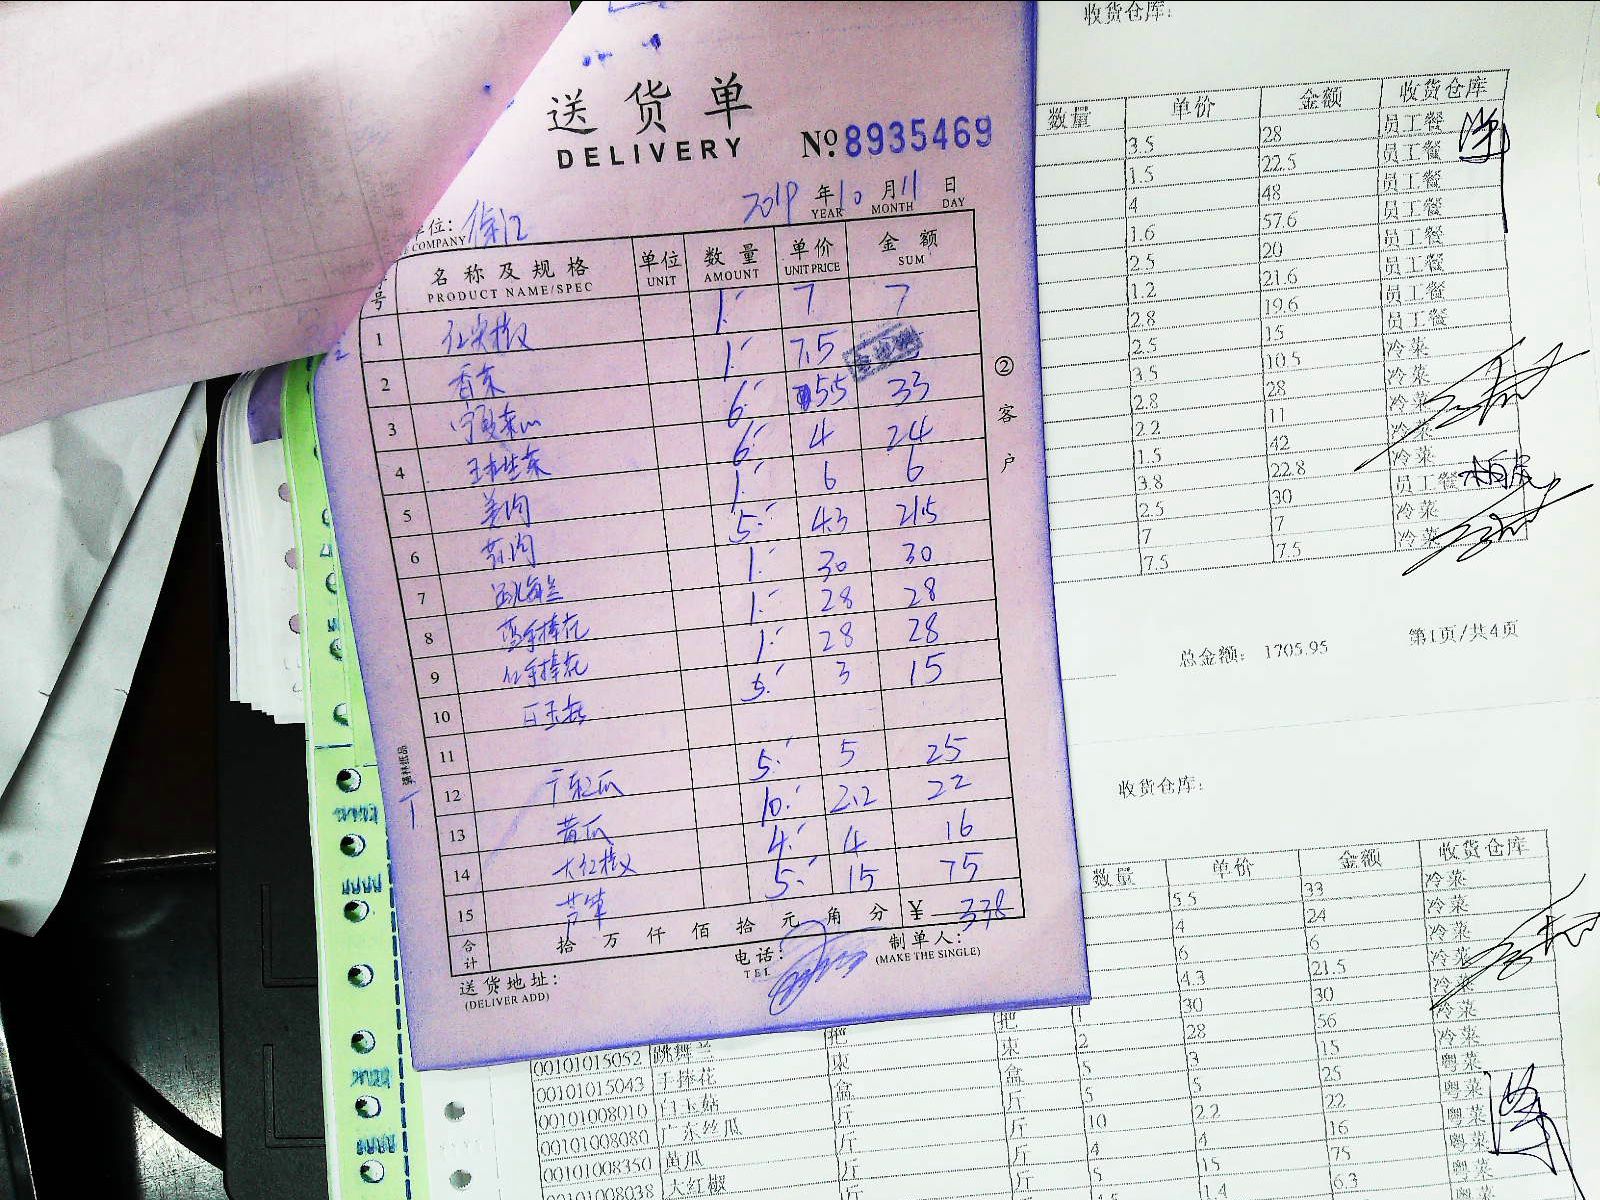 收货仓库:
送货单
DELIVERY
№ 8935469
2019 年 10 月 11 日
YEAR MONTH DAY
位:
COMPANY
号 名称及规格 单位 数量 单价 金额
PRODUCT NAME/SPEC UNIT AMOUNT UNIT PRICE SUM
1 红尖椒 1 7 7
2 香菜 1 7.5
3 宁夏菜心 6 5.5 33
4 6 4 24
5 1 6 6
6 5 4.3 21.5
7 跳舞兰 1 30 30
8 1 28 28
9 红手捧花 1 28 28
10 白玉菇 5 3 15
11
12 广东丝瓜 5 5 25
13 黄瓜 10 2.2 22
14 大红椒 4 4 16
15 芦笋 5 15 75
合计 拾 万 仟 佰 拾 元 角 分 ¥ 338
送货地址:
(DELIVER ADD)
电话:
TEL
制单人:
(MAKE THE SINGLE)
②客户
数量 单价 金额 收货仓库
3.5 28 员工餐
1.5 22.5 员工餐
4 48 员工餐
1.6 57.6 员工餐
2.5 20 员工餐
1.2 21.6 员工餐
2.8 19.6 员工餐
2.5 15 员工餐
3.5 10.5 冷菜
2.8 28 冷菜
2.2 11 冷菜
1.5 42 冷菜
3.8 22.8 冷菜
2.5 30 员工餐
7 7 冷菜
7.5 7.5 冷菜
总金额: 1705.95 第1页/共4页
收货仓库:
数量 单价 金额 收货仓库
5.5 33 冷菜
4 24 冷菜
6 6 冷菜
4.3 21.5 冷菜
把 1 30 30 冷菜
00101015052 跳舞兰 把 束 2 28 56 冷菜
00101015043 手捧花 束 盒 5 3 15 冷菜
00101008010 白玉菇 盒 斤 5 5 25 粤菜
00101008080 广东丝瓜 斤 斤 10 2.2 22 粤菜
00101008350 黄瓜 斤 斤 4 4 16 粤菜
00101008038 大红椒 斤 斤 5 15 75 粤菜
1.4 6.3 粤菜